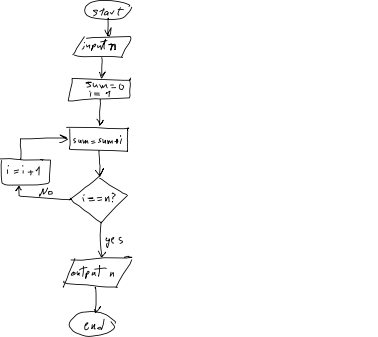 start
input n
sum=0
i=1
sum=sum+i
i=i+1
No
i==n?
yes
output n
end